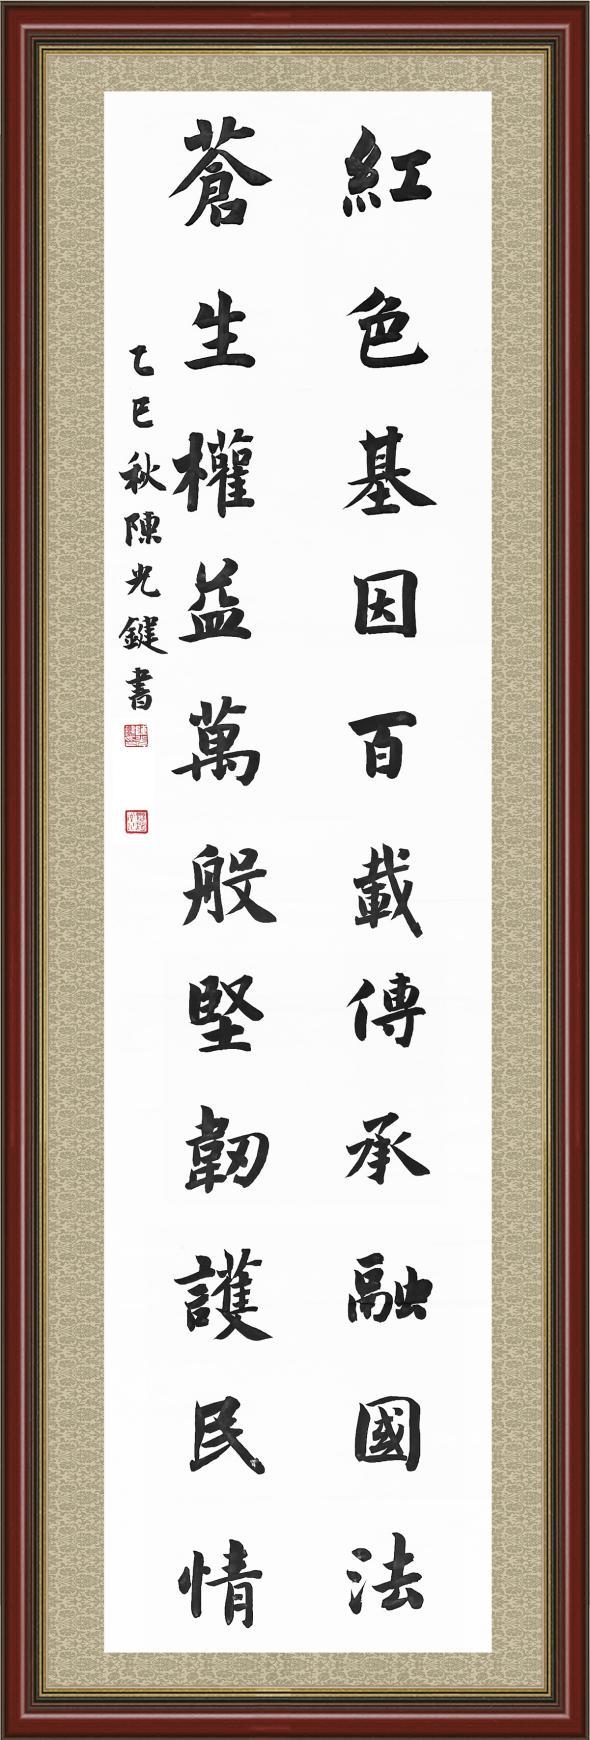 紅色基因百載傳承融國法
蒼生權益萬般堅韌護民情
乙巳秋陳光鍵書